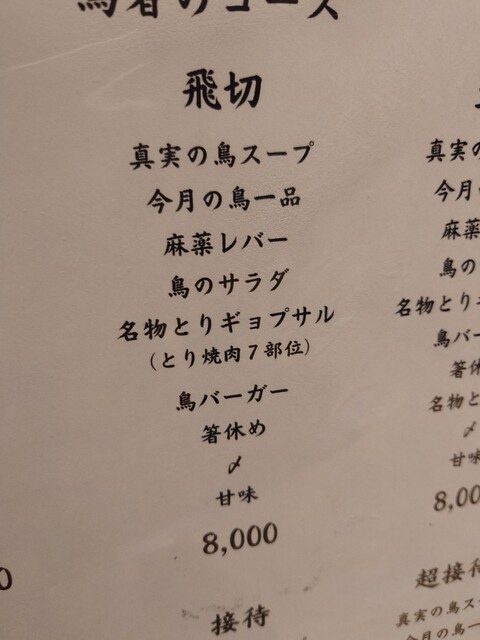 鳥者のコース
飛切
真実の鳥スープ
今月の鳥一品
麻薬レバー
鳥のサラダ
名物とりギョプサル
(とり焼肉7部位)
鳥バーガー
箸休め
〆
甘味
8,000
接待
真実の
今月
麻薬
鳥の
名物とり
鳥バー
箸休
名物と
〆
甘味
8,00
超接待
真実の鳥ス
今月の鳥一
0